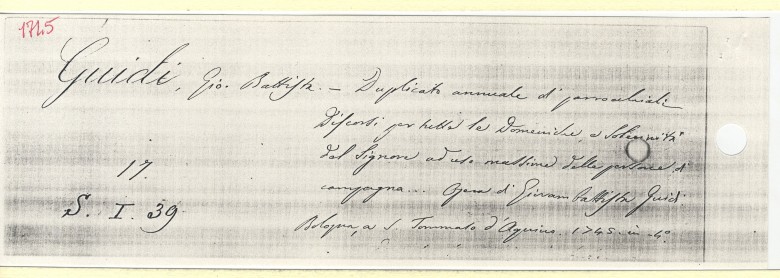 1745
Guidi, Gio. Battista. – Duplicato annuale di parrocchiali
Discorsi per tutte le Domeniche, e Solennità
del Signore ad uso massime delle persone di
campagna... Opera di Giovambattista Guidi
Bologna, a S. Tommaso d'Aquino. 1745. in-4°.
17.
S. I. 39